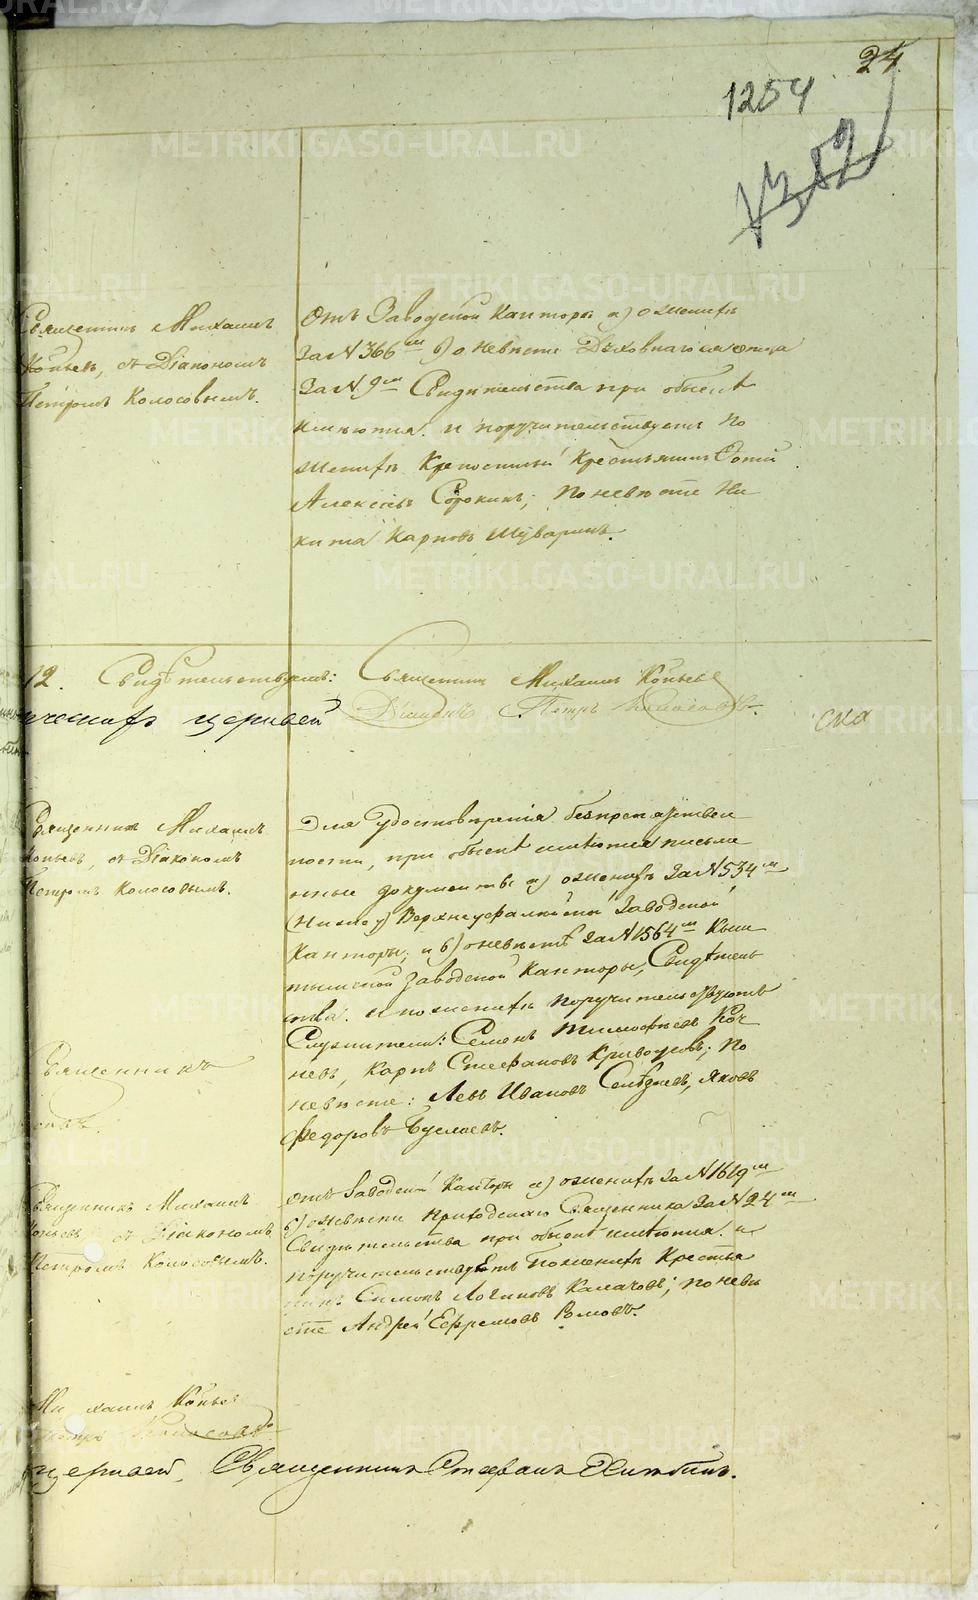 24
1254
1352
Священникъ Михаилъ
Копьевъ, съ Діакономъ
Петромъ Колосовымъ.
Отъ Заводской Канторы а) о женихѣ
За № 366м б) о невѣсте Духовнаго отца
За № 9м Свидѣтельства при обыскѣ
имѣются. и поручительствуетъ по
женихѣ Крепостный Крестьянинъ
Алексѣй Сорокинъ; по невѣсте Ни
кита Карповъ Шуваринъ.
12. Свидѣтельствуемъ: Священникъ Михаилъ Копьевъ
церквей Діаконъ Петръ Колосовъ.
Священникъ Михаилъ
Копьевъ, съ Діакономъ
Петромъ Колосовымъ.
Для удостовѣренія безпрепятствен
ности, при обыскѣ имѣются письме
нные документы а) о женихѣ За № 534м
Верхнеуфалейской Заводской
Канторы; и б) о невѣстѣ За № 1564м Кыш
тымской Заводской Канторы, Свидѣтель
ства. и по женихѣ поручительствуютъ
Служители: Семенъ Тимофѣевъ Коч
невъ, Карпъ Стефановъ Кривоусовъ; по
невѣсте: Левъ Ивановъ Селѣзневъ, Яковъ
Федоровъ Буслаевъ.
Священникъ
Священникъ Михаилъ
Копьевъ съ Діакономъ
Петромъ Колосовымъ.
Отъ Заводской Канторы а) о женихѣ За № 1619м
б) о невѣсте приходскаго Священника За № 24м
Свидѣтельства при обыскѣ имѣются. и
поручительствуетъ по женихѣ Крестья
нинъ Симонъ Логиновъ Калачовъ; по невѣ
сте Андрей Ефремовъ
Михаилъ Копьевъ
Петръ Колосовъ
церквей, Священникъ Стефанъ
METRIKI.GASO-URAL.RU